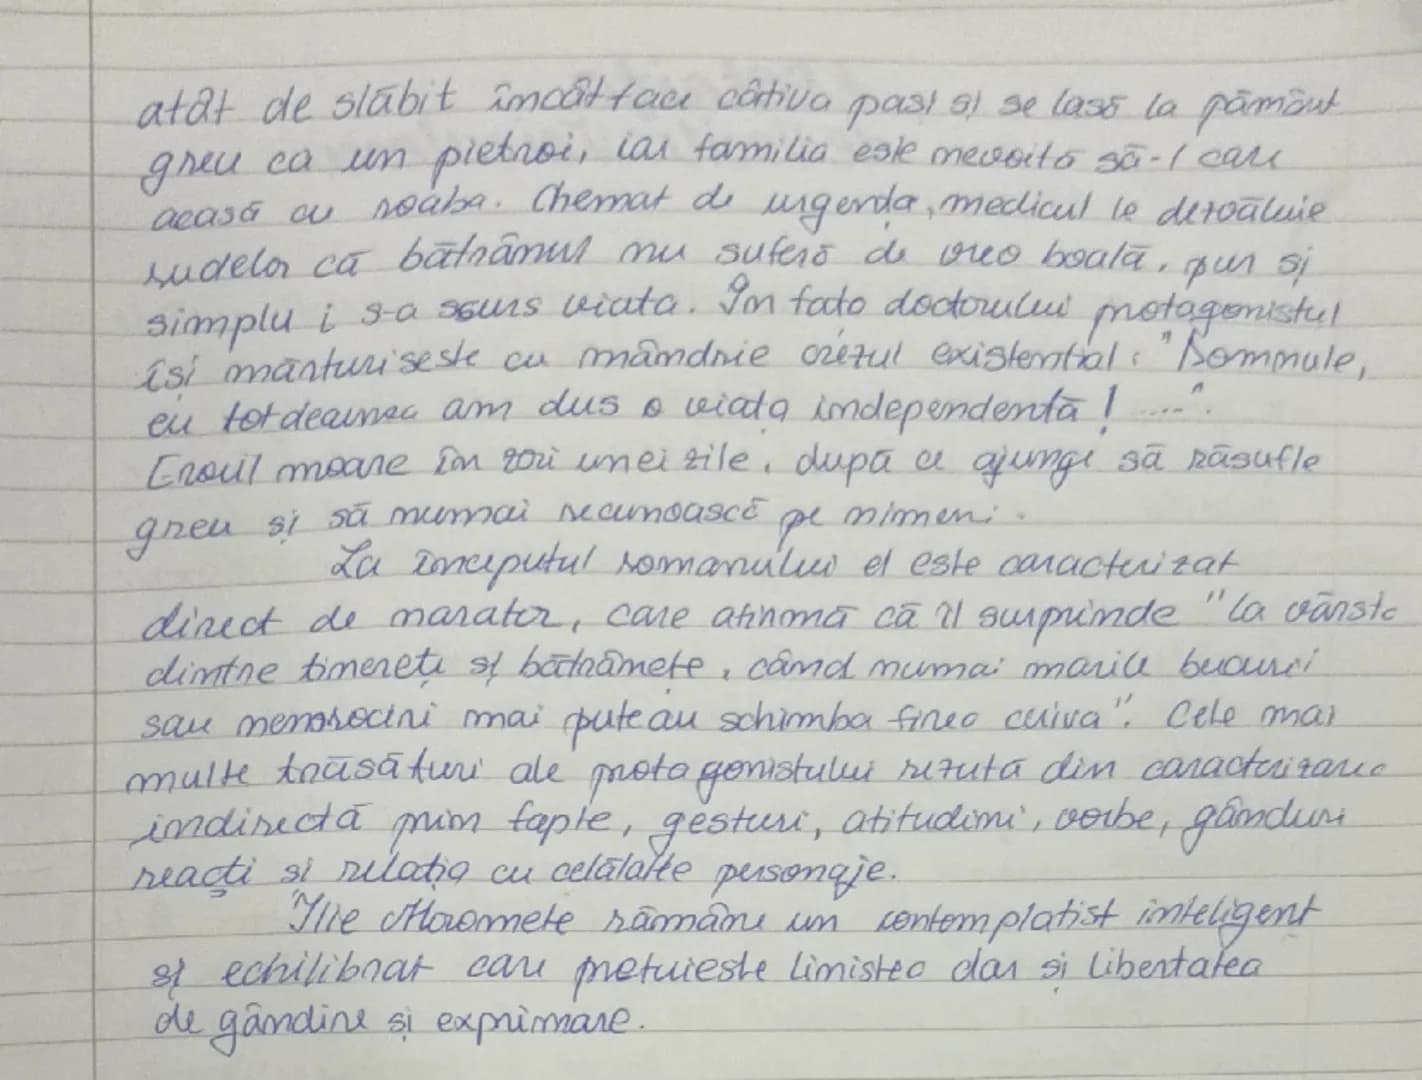 atât de slăbit încât face câtiva pasi si se lasă la pământ
greu ca un pietroi, iar familia este nevoită să-l care
acasă cu roaba. Chemat de urgenda, medicul le dezvăluie
rudelor că bătrânul nu suferă de vreo boală, pur si
simplu i s-a scurs viata. În fata doctorului protagonistul
îsi mărturiseste cu mândrie crezul existential: "Domnule,
eu totdeauna am dus o viata independentă! ....".
Eroul moare în zori unei zile, după ce ajunge să răsufle
greu și să numai recunoască pe nimeni.
La începutul romanului el este caracterizat
direct de narator, care afirmă că îl surprinde "la vârsta
dintre tinerețe si bătrânețe, când numai marile bucurii
sau nenorociri mai puteau schimba firea cuiva". Cele mai
multe trăsături ale protagonistului rezută din caracterizarea
indirectă prin fapte, gesturi, atitudini, vorbe, gânduri
reacții si relatia cu celălalte personaje.
Ilie Moromete rămâne un contemplatist inteligent
si echilibrat care prețuieste linistea dar si libertatea
de gândire și exprimare.